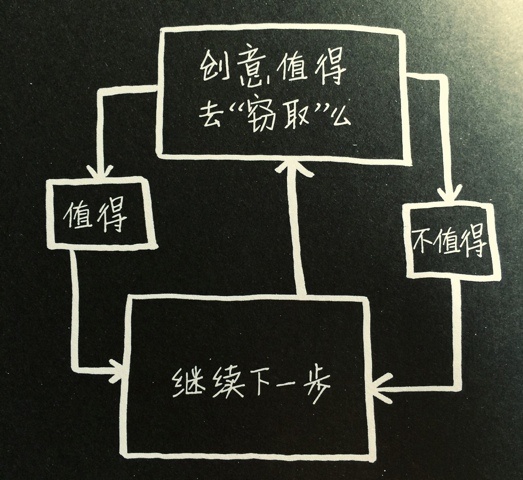 创意值得
去“窃取”么
值得
不值得
继续下一步